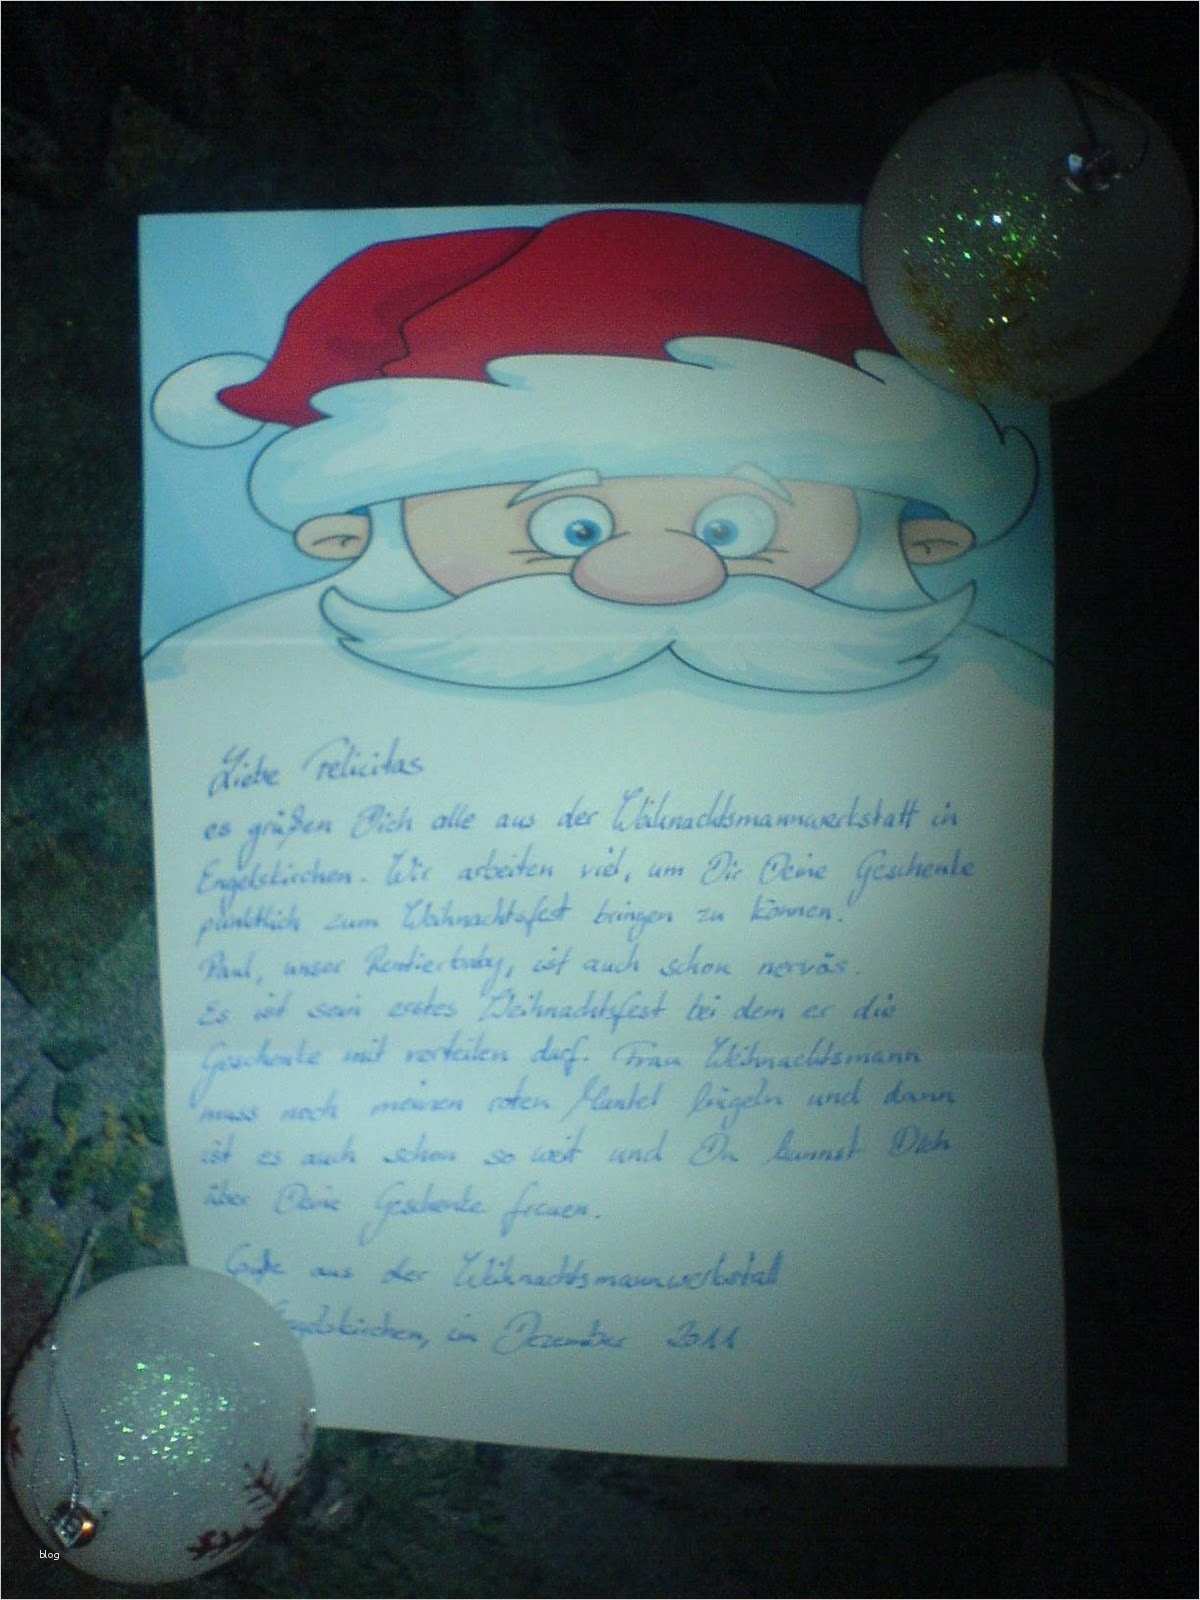 Liebe Felicitas
es grüßen Dich alle aus der Weihnachtsmannwerkstatt in
Engelskirchen. Wir arbeiten viel, um Dir Deine Geschenke
pünktlich zum Weihnachtsfest bringen zu können.
Paul, unser Rentierbaby, ist auch schon nervös.
Es ist sein erstes Weihnachtsfest bei dem er die
Geschenke mit verteilen darf. Frau Weihnachtsmann
muss noch meinen roten Mantel bügeln und dann
ist es auch schon so weit und Du kannst Dich
über Deine Geschenke freuen.
Grüße aus der Weihnachtsmannwerkstatt
Engelskirchen, im Dezember 2011
blog